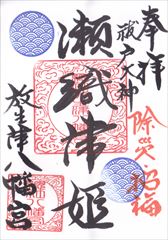 奉拝
祓戸大神
除災招福
瀬織津姫
放生津八幡宮